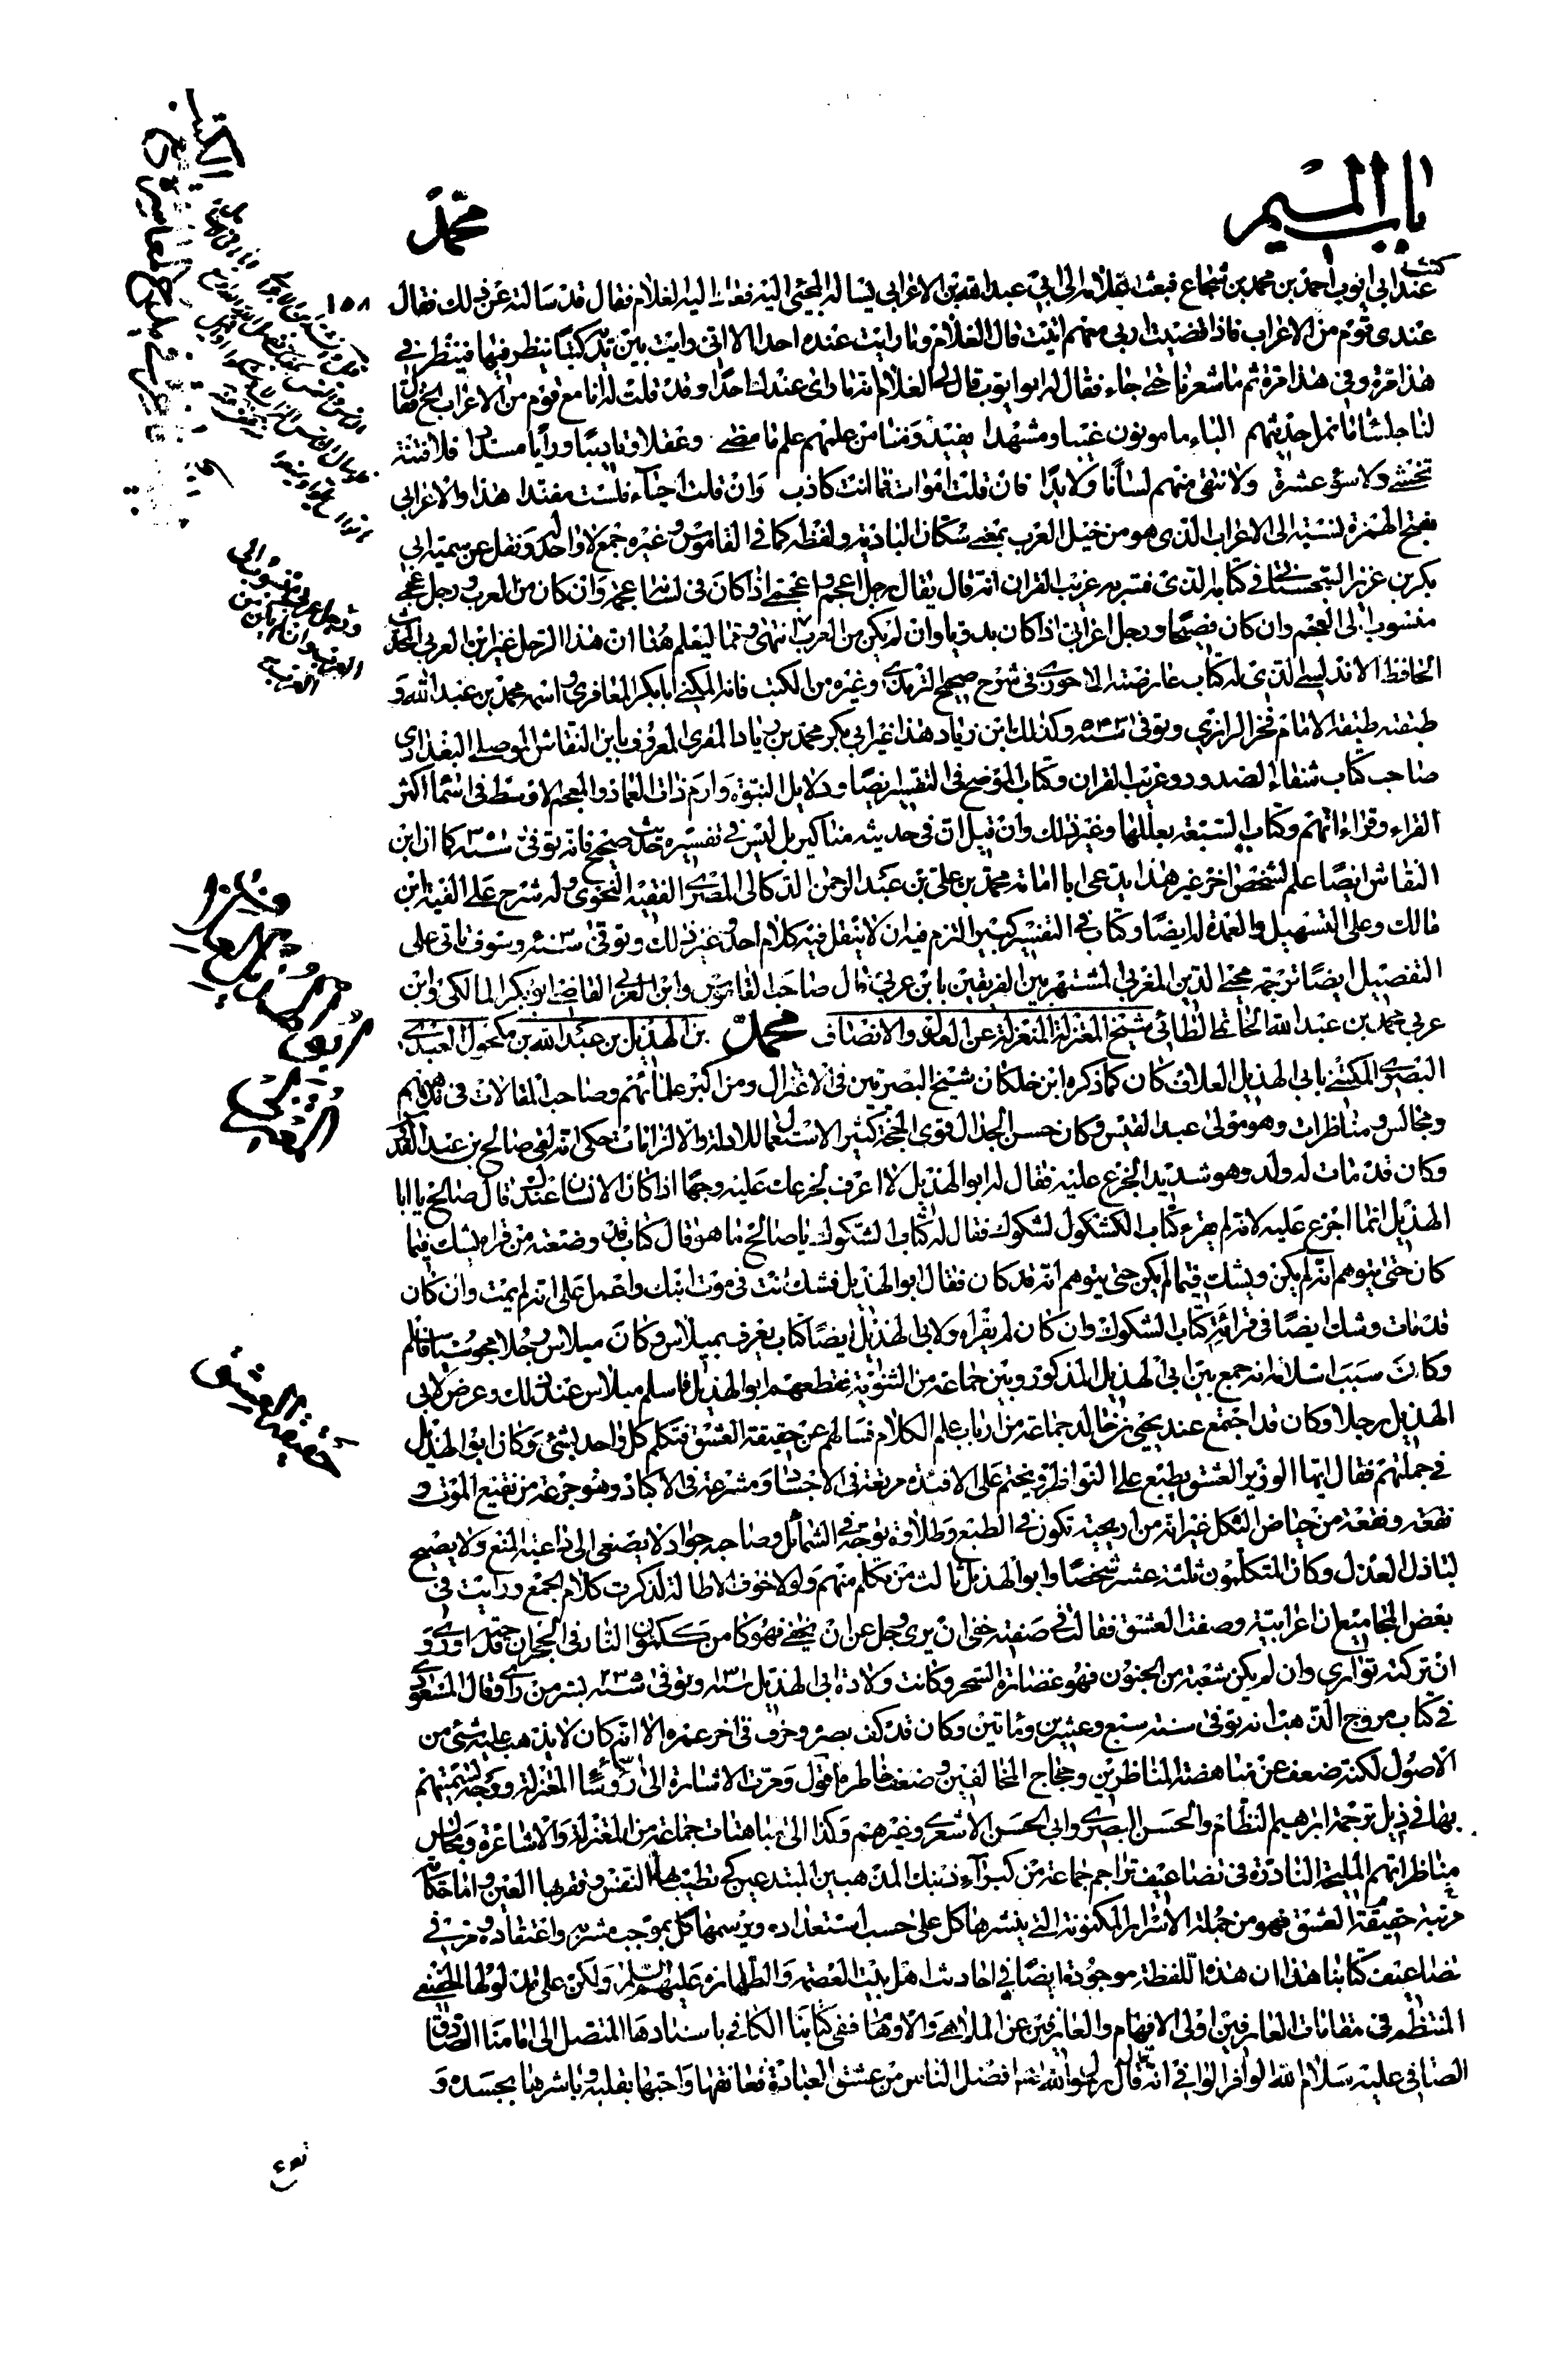 باب الميم
محمد
١٥٨
كنت
عند ابى ايوب احمد بن محمد بن شجاع فبعث غلامه الى ابى عبد الله بن الاعرابى يسأله المجئ اليه فعاد اليه الغلام فقال قد سالته عن ذلك فقال
عندى قوم من الاعراب فاذا قضيت اربى معهم اتيت قال الغلام وما رايت عنده احدا الا انى رايت بين يديه كتبا ينظر فيها فينظر فى
هذا مرة وفى هذا مرة ثم ما شعرنا حتى جاء فقال له ابو ايوب قال لى الغلام انه ما راى عندك احدا وقد قلت له انا مع قوم من الاعراب الخ فقال
لنا جلساء ما نمل حديثهم البّاء مامونون غيبا ومشهدا يفيدوننا من علمهم علم ما مضى وعقلا وتاديبا ورايا مسددا فلا فتنة
تخشى ولا سوء عشرة ولا نتقى منهم لسانا ولا يدا فان قلت اموات فما انت كاذب وان قلت احياء فلست مفندا هذا والاعرابى
بفتح الهمزة لنسبته الى الاعراب الذى هو من خيل العرب بمعنى سكان البادية ولفظه كما فى القاموس وغيره جمع لا واحد له ونقل عن سميه ابى
بكر بن عزيز السجستانى فى كتابه الذى فسر به غريب القران انه قال يقال رجل اعجم واعجمى اذا كان فى لسانه عجمة وان كان من العرب ورجل عجمى
منسوب الى العجم وان كان فصيحا ورجل اعرابى اذا كان بدويا وان لم يكن من العرب انتهى ومما ليعلم هنا ان هذا الرجل غير ابن العربى المحدث
الحافظ الاندلسى الذى له كتاب عارضة الاحوذى فى شرح صحيح الترمذى وغيره من الكتب فانه المكنى ابا بكر المعافرى واسمه محمد بن عبد الله و
طبقته طبقة الامام فخر الرازى وتوفى سنة ٥٤٣ وكذلك ابن زياد هذا غير ابى بكر محمد بن زياد المقرى المعروف بابن النقاش الموصلى البغدادى
صاحب كتاب شفاء الصدور وغريب القران وكتاب الموضح فى التفسير ايضا ودلايل النبوة وارم ذات العماد والمعجم الاوسط فى اسماء اكثر
القراء وقراءاتهم وكتاب السبعة بعللها وغير ذلك وان قيل ان فى حديثه مناكير بل ليس فى تفسيره حديث صحيح فانه توفى سنة ٣٥١ كما ان ابن
النقاش ايضا علم لشخص اخر غير هذا يدعى ابا امامة محمد بن على بن عبد الرحمن الدكالى المصرى الفقيه النحوى وله شرح على الفية ابن
مالك وعلى التسهيل والعمدة له ايضا وكتاب فى التفسير كبير التزم فيه ان لا ينقل فيه كلام احد وغير ذلك وتوفى سنة وسوف ياتى على
التفصيل ايضا ترجمة محيى الدين المغربى المشتهر بين الفريقين بابن عربى قال صاحب القاموس وابن العربى القاضى ابو بكر المالكى وابن
عربى محمد بن عبد الله الحاتمى الطائى شيخ المعتزلة المنعزلة عن العدل والانصاف محمد بن الهذيل بن عبد الله بن مكحول العبدى
البصرى المكنى بابى الهذيل العلاف كان كما ذكره ابن خلكان شيخ البصريين فى الاعتزال ومن اكبر علمائهم وصاحب المقالات فى مذهبهم
ومجالس ومناظرات وهو مولى عبد القيس وكان حسن الجدال قوى الحجة كثير الاستعمال للادلة والالزامات حكى انه لقى صالح بن عبد القدوس
وكان قد مات له ولد وهو شديد الجزع عليه فقال له ابو الهذيل لا اعرف لجزعك عليه وجها اذا كان الانسان عندك قال صالح يا ابا
الهذيل انما اجزع عليه لانه لم يقرء كتاب الكشكول لشكوك فقال له كتاب الشكوك يا صالح ما هو قال كتاب قد وضعته من قراه يشك فيما
كان حتى يتوهم انه لم يكن ويشك فيما لم يكن حتى يتوهم انه قد كان فقال ابو الهذيل فشك انت فى موت ابنك واعمل على انه لم يمت وان كان
قد مات وشك ايضا فى قرائته كتاب الشكوك وان كان لم يقراه ولابى الهذيل ايضا كتاب يعرف بميلاس وكان ميلاس رجلا مجوسيا فاسلم
وكان سبب اسلامه انه جمع بين ابى الهذيل المذكور وبين جماعة من الثنوية فقطعهم ابو الهذيل فاسلم ميلاس عند ذلك وعرض لابى
الهذيل رجلا وكان قد اجتمع عند يحيى بن خالد جماعة من ارباب علم الكلام فسالهم عن حقيقة العشق فتكلم كل واحد بشئ وكان ابو الهذيل
فى جملتهم فقال ايها الوزير العشق يطبع على النواظر ويختم على الافئدة مرتعة فى الاجساد ومشرعة فى الاكباد وهو جرعة من نقيع الموت و
نقعه ونقعة من حياض الثكل غير انه من اريحية تكون فى الطبع وطلاوة توجد فى الشمائل وصاحبه جواد لا يصغى الى داعية المنع ولا يصيح
لنازل العذل وكان المتكلمون ثلثة عشر شخصا وابو الهذيل ثالث من تكلم منهم ولولا خوف الاطالة لذكرت كلام الجمع ورايت فى
بعض المجاميع ان اعرابية وصفت العشق فقالت فى صفته خفى ان يرى وجل عن ان يخفى فهو كامن ككمون النار فى الحجر ان قدحته اورى و
ان تركته توارى وان لم يكن شعبة من الجنون فهو عصارة السحر وكانت ولادة ابى الهذيل سنة ١٣١ وتوفى سنة ٢٣٥ بسر من راى وقال المسعودى
فى كتاب مروج الذهب انه توفى سنة سبع وعشرين ومأتين وكان قد كف بصره وخرف فى اخر عمره الا انه كان لا يذهب عليه شئ من
الاصول لكنه ضعف عن مناهضة المناظرين وحجاج المخالفين وضعف خاطره اقول ومرت الاشارة الى رؤساء المعتزلة ووجه تسميتهم
بها فى ذيل ترجمة ابرهيم النظام والحسن البصرى وابى الحسن الاشعرى وغيرهم وكذا الى مباهتات جماعة من المعتزلة والاشاعرة ومجالس
مناظراتهم المليحة النادرة فى تضاعيف تراجم جماعة من كبرآء ذينك المذهبين المبتدعين كى تطيب بها النفس وتقر بها العين واما حكاية
مرتبة حقيقة العشق فهو من جملة الاسرار المكنونة التى ينشرها كل على حسب استعداده ويرسمها كل بموجب مشربه واعتقاده ومر فى
تضاعيف كتابنا هذا ان هذه اللفظة موجودة ايضا فى احاديث اهل بيت العصمة والطهارة عليهم السلام ولكن على
المنتظم فى مقامات العارفين اولى الافهام والعارفين عن الملاهى والاوهام ففى كتابنا الكافى باسنادها المتصل الى امامنا الصادق
الصافى عليه سلام الله الوافر الوافى انه قال قال رسول الله افضل الناس من عشق العبادة فعانقها واحبها بقلبه وباشرها بجسده و
ابو الهذيل
حقيقة العشق